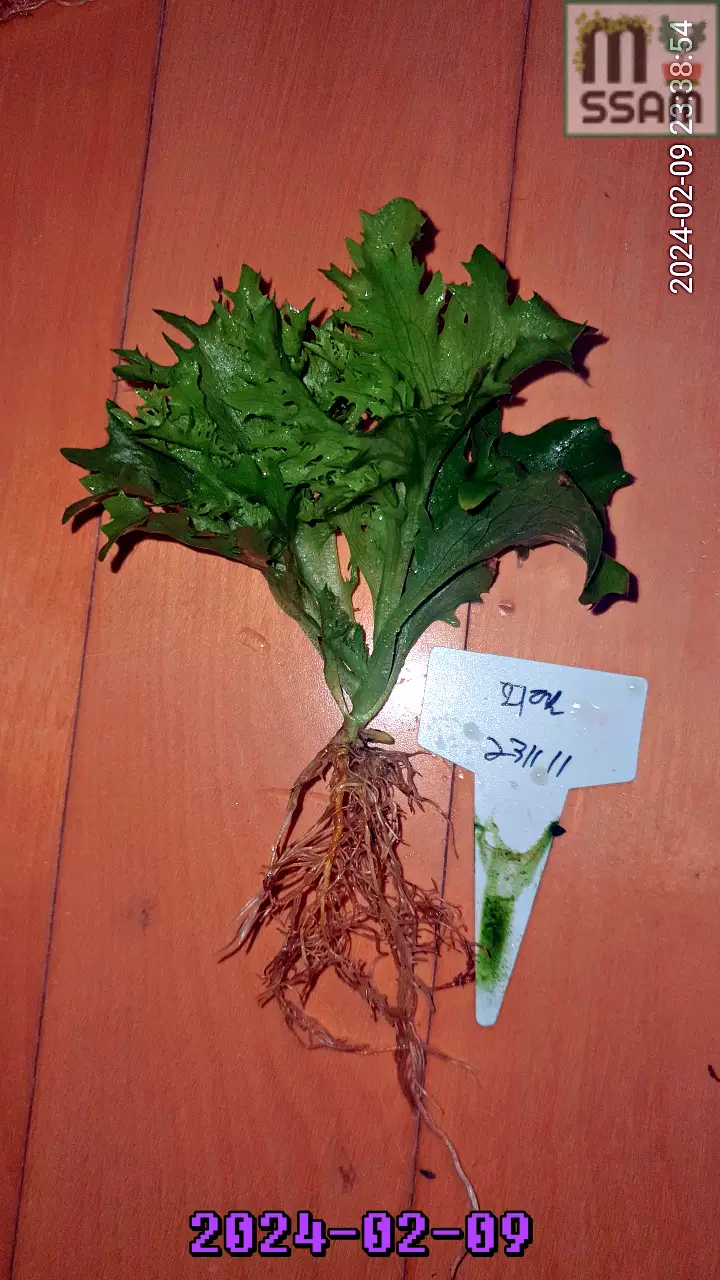 M
SSAM
2024-02-09 23:38:54
231111
2024-02-09